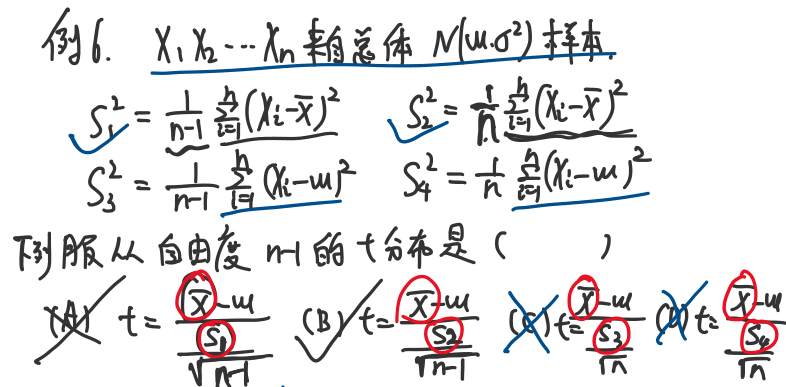 例6. X₁ X₂ … Xₙ 来自总体 N(μ.σ²) 样本.
S₁² = 1/(n-1) Σᵢ₌₁ⁿ (Xᵢ-X̄)²  S₂² = 1/n Σᵢ₌₁ⁿ (Xᵢ-X̄)²
S₃² = 1/(n-1) Σᵢ₌₁ⁿ (Xᵢ-μ)²  S₄² = 1/n Σᵢ₌₁ⁿ (Xᵢ-μ)²
下列服从自由度 n-1 的 t分布是 ( )
(A) t = (X̄-μ)/(S₁/√(n-1))  (B) t = (X̄-μ)/(S₂/√(n-1))  (C) t = (X̄-μ)/(S₃/√n)  (D) t = (X̄-μ)/(S₄/√n)